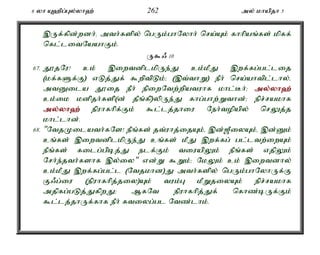 6 லா யுஹிப்புல்லாஹ் 262 அல் மாயிதா 5
இருக்கின்றனர். அவர்களில் பெரும்பாலோர் செய்யும் காரியங்கள் மிகக்
கெட்டவையேயாகும்.
ருகூஃ 10
67. தூதரே! உம் இறைவனிடமிருந்து உம்மீது இறக்கப்பட்டதை
(மக்களுக்கு) எடுத்துக் கூறிவிடும்; (இவ்வாறு) நீர் செய்யாவிட்டால்,
அவனுடைய தூதை நீர் நிறைவேற்றியவராக மாட்டீர்; அல்லாஹ்
உம்மை மனிதர்களி(ன் தீங்கி)லிருந்து காப்பாற்றுவான்; நிச்சயமாக
அல்லாஹ் நிராகரிக்கும் கூட்டத்தாரை நேர்வழியில் செலுத்த
மாட்டான்.
68. "வேதமுடையவர்களே! நீங்கள் தவ்ராத்தையும், இன்ஜீலையும், இன்னும்
உங்கள் இறைவனிடமிருந்து உங்கள் மீது இறக்கப் பட்டவற்றையும்
நீங்கள் கடைப்பிடித்து நடக்கும் வரையிலும் நீங்கள் எதிலும்
சேர்ந்தவர்களாக இல்லை" என்று கூறும்; மேலும் உம் இறைவனால்
உம்மீது இறக்கப்பட்ட (வேதமான)து அவர்களில் பெரும்பாலோருக்கு
குஃப்ரை (நிராகரித்தலை)யும் வரம்பு மீறுதலையும் நிச்சயமாக
அதிகப்படுத்துகிறது; ஆகவே நிராகரித்துக் கொண்டிருக்கும்
கூட்டத்தாருக்காக நீர் கவலைப்பட வேண்டாம்.